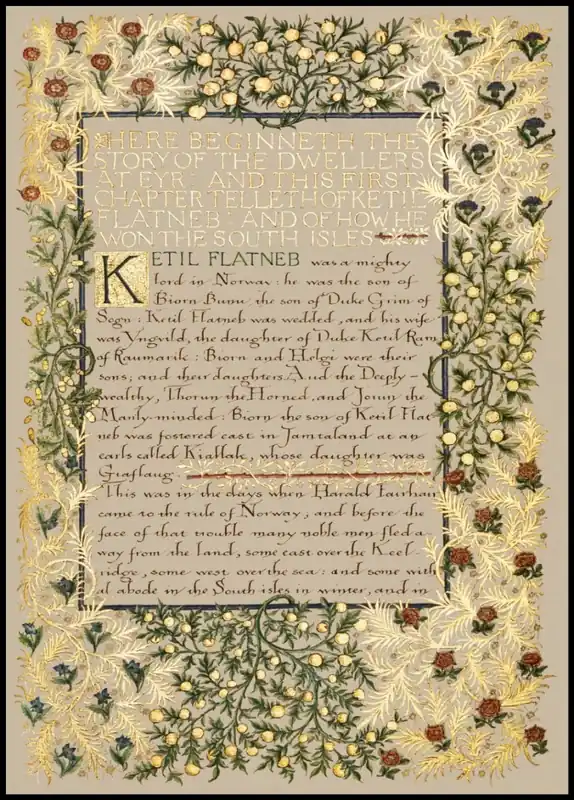 HERE BEGINNETH THE
STORY OF THE DWELLERS
AT EYR: AND THIS FIRST
CHAPTER TELLETH OF KETIL
FLATNEB: AND OF HOW HE
WON THE SOUTH ISLES
KETIL FLATNEB was a mighty
lord in Norway: he was the son of
Biorn Bunu, the son of Duke Grim of
Sogn: Ketil Flatneb was wedded, and his wife
was Yngvild, the daughter of Duke Ketil Ram
of Raumarik: Biorn and Helgi were their
sons; and their daughters Aud the Deeply-
wealthy, Thorun the Horned, and Jorun the
Manly-minded: Biorn the son of Ketil Flat
neb was fostered east in Jamtaland at an
earls called Kiallak, whose daughter was
Giaflaug.
This was in the days when Harald Fairhair
came to the rule of Norway; and before the
face of that trouble many noble men fled a-
way from the land, some east over the Keel-
ridge, some west over the sea: and some with
al abode in the South isles in winter, and in